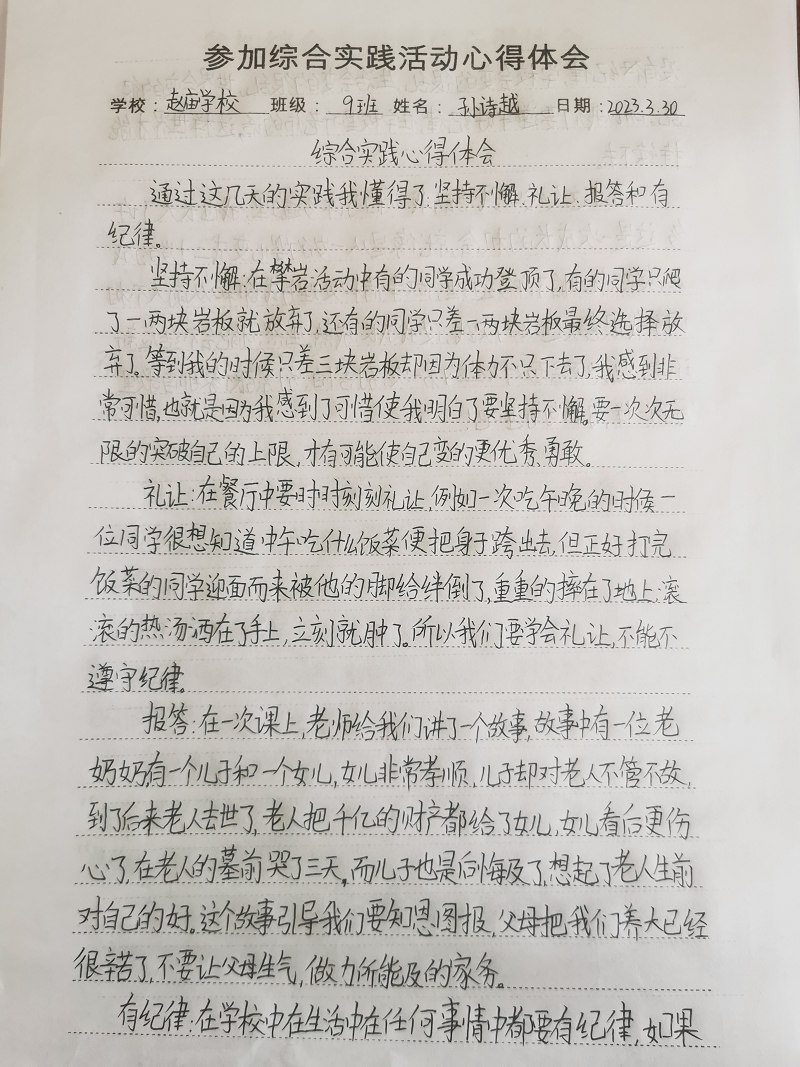 参加综合实践活动心得体会
学校：赵庙学校 班级：9班 姓名：孙诗越 日期：2023.3.30
综合实践心得体会
通过这几天的实践我懂得了坚持不懈、礼让、报答和有
纪律。
坚持不懈：在攀岩活动中有的同学成功登顶了，有的同学只爬
了一两块岩板就放弃了，还有的同学只差一两块岩板最终选择放
弃了。等到我的时候只差三块岩板却因为体力不只下去了，我感到非
常可惜，也就是因为我感到了可惜使我明白了要坚持不懈。要一次次无
限的突破自己的上限，才有可能使自己变的更优秀、勇敢。
礼让：在餐厅中要时时刻刻礼让，例如一次吃午晚的时候一
位同学很想知道中午吃什么饭菜便把身子跨出去，但正好打完
饭菜的同学迎面而来被他的脚给绊倒了，重重的摔在了地上，滚
滚的热汤洒在了手上，立刻就肿了。所以我们要学会礼让，不能不
遵守纪律。
报答：在一次课上，老师给我们讲了一个故事，故事中有一位老
奶奶有一个儿子和一个女儿，女儿非常孝顺，儿子却对老人不管不故，
到了后来老人去世了，老人把千亿的财产都给了女儿，女儿看后更伤
心了，在老人的墓前哭了三天。而儿子也是后悔及了，想起了老人生前
对自己的好。这个故事引导我们要知恩图报，父母把我们养大已经
很辛苦了，不要让父母生气，做力所能及的家务。
有纪律：在学校中在生活中在任何事情中都要有纪律，如果